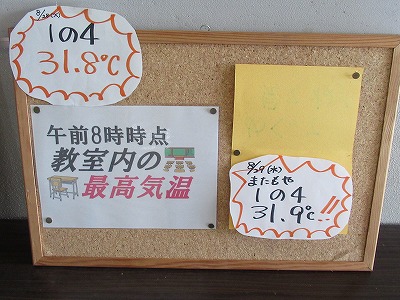 8/28(火)
1の4
31.8℃
午前8時時点
教室内の
最高気温
8/29(水)
またもや
1の4
31.9℃!!